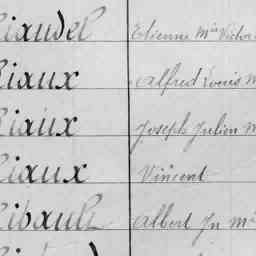 Riaudel Etienne Mie Victor
Riaux Alfred Louis M
Riaux Joseph Julien M
Riaux Vincent
Ribault Albert Jn Mie